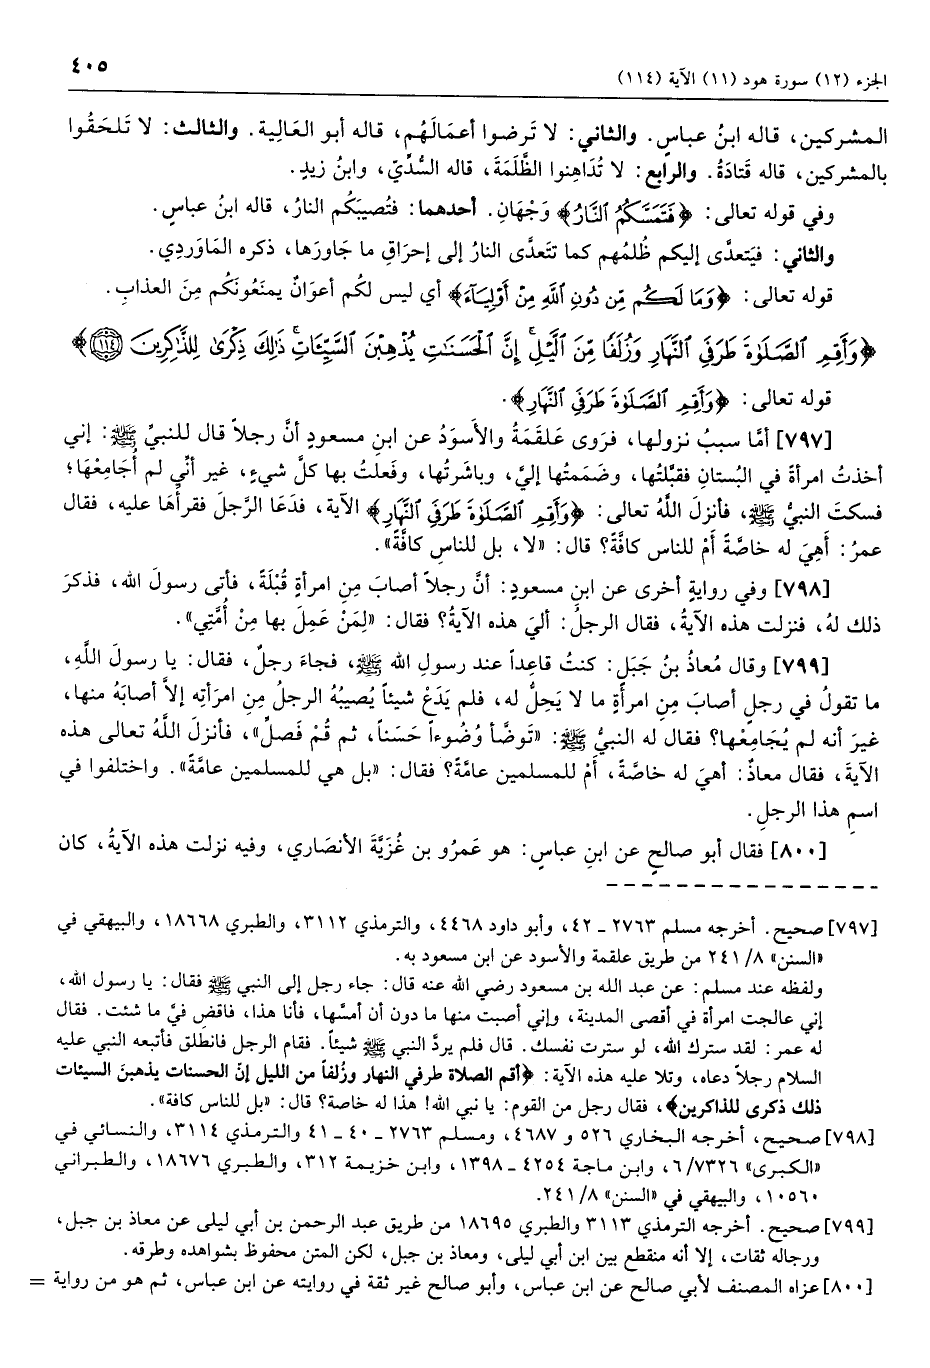 الجزء (١٢) سورة هود (١١) الآية (١١٤)
٤٠٥
المشركين، قاله ابنُ عباسٍ. والثاني: لا تَرضوا أعمَالَهُم، قاله أبو العَالية. والثالث: لا تَلحَقُوا
بالمشركين، قاله قَتادَةُ. والرابع: لا تُدَاهِنوا الظَّلَمَةَ، قاله السُّدِّيّ، وابنُ زيدٍ.
وفي قوله تعالى: ﴿فَتَمَسَّكُمُ النَّارُ﴾ وَجْهَانِ. أحدهما: فتُصيبَكُم النارُ، قاله ابنُ عباسٍ.
والثاني: فيَتعدَّى إليكم ظُلمُهم كما تتَعدَّى النارُ إلى إحرَاقِ ما جَاورَها، ذكره المَاوَردِي.
قوله تعالى: ﴿وَمَا لَكُم مِّن دُونِ اللَّهِ مِنْ أَوْلِيَآءَ﴾ أي ليس لكُم أعوَانٌ يمنَعُونَكُم مِنَ العذابِ.
﴿وَأَقِمِ الصَّلَوٰةَ طَرَفَيِ النَّهَارِ وَزُلَفًا مِّنَ الَّيْلِ إِنَّ الْحَسَنَاتِ يُذْهِبْنَ السَّيِّئَاتِ ذَٰلِكَ ذِكْرَىٰ لِلذَّاكِرِينَ ﴿١١٤﴾﴾
قوله تعالى: ﴿وَأَقِمِ الصَّلَوٰةَ طَرَفَيِ النَّهَارِ﴾.
[٧٩٧] أمَّا سببُ نزولها، فرَوى عَلقَمَةُ والأسوَدُ عن ابنِ مسعودٍ أنَّ رجلاً قال للنبيِّ ﷺ: إني
أخذتُ امرأةً في البُستانِ فقبَّلتُها، وضَممتُها إليَّ، وباشَرتُها، وفَعلتُ بها كلَّ شيءٍ، غير أنّي لم أُجَامِعْهَا؛
فسكتَ النبيُّ ﷺ، فأنزلَ اللَّهُ تعالى: ﴿وَأَقِمِ الصَّلَوٰةَ طَرَفَيِ النَّهَارِ﴾ الآية، فدَعَا الرَّجلَ فقرأهَا عليه، فقال
عمرُ: أَهِيَ له خاصَّةً أَمْ للناس كافَّةً؟ قال: «لا، بل للناسِ كافَّةً».
[٧٩٨] وفي روايةٍ أخرى عن ابنِ مسعودٍ: أنَّ رجلاً أصابَ مِنِ امرأةٍ قُبْلَةً، فأتى رسولَ الله، فذكرَ
ذلك لهُ، فنزلت هذه الآيةُ، فقال الرجلُ: أليَ هذه الآيةُ؟ فقال: «لِمَنْ عَمِلَ بها مِنْ أُمَّتِي».
[٧٩٩] وقال مُعاذُ بنُ جَبَلٍ: كنتُ قاعِداً عند رسولِ الله ﷺ، فجاءَ رجلٌ، فقال: يا رسولَ اللَّهِ،
ما تقولُ في رجلٍ أصابَ مِنِ امرأةٍ ما لا يَحِلُّ له، فلم يَدَعْ شيئاً يُصيبُهُ الرجلُ مِنِ امرَأتِه إلاَّ أصابَهُ منها،
غيرَ أنه لم يُجَامِعْها؟ فقال له النبيُّ ﷺ: «تَوضَّأ وُضُوءاً حَسَناً، ثم قُمْ فَصلِّ»، فأنزلَ اللَّهُ تعالى هذه
الآيةَ، فقال معاذٌ: أهيَ له خاصَّة، أَمْ للمسلمين عامَّةً؟ فقال: «بل هي للمسلمين عامَّةً». واختلفوا في
اسمِ هذا الرجلِ.
[٨٠٠] فقال أبو صالحٍ عن ابنِ عباسٍ: هو عَمرُو بن غُزَيَّةَ الأنصَاري، وفيه نزلت هذه الآيةُ، كان
[٧٩٧] صحيح. أخرجه مسلم ٢٧٦٣ ـ ٤٢، وأبو داود ٤٤٦٨، والترمذي ٣١١٢، والطبري ١٨٦٦٨، والبيهقي في
«السنن» ٨/ ٢٤١ من طريق علقمة والأسود عن ابن مسعود به.
ولفظه عند مسلم: عن عبد الله بن مسعود رضي الله عنه قال: جاء رجل إلى النبي ﷺ فقال: يا رسول الله،
إني عالجت امرأة في أقصى المدينة، وإني أصبت منها ما دون أن أمسَّها، فأنا هذا، فاقضِ فيَّ ما شئت. فقال
له عمر: لقد سترك الله، لو سترت نفسك. قال فلم يردَّ النبي ﷺ شيئاً. فقام الرجل فانطلق فأتبعه النبي عليه
السلام رجلاً دعاه، وتلا عليه هذه الآية: ﴿أقم الصلاة طرفي النهار وزُلفاً من الليل إنّ الحسنات يذهبنَ السيئات
ذلك ذكرى للذاكرين﴾، فقال رجل من القوم: يا نبي الله! هذا له خاصة؟ قال: «بل للناس كافة».
[٧٩٨] صحيح، أخرجه البخاري ٥٢٦ و ٤٦٨٧، ومسلم ٢٧٦٣ ـ ٤٠ ـ ٤١ والترمذي ٣١١٤، والنسائي في
«الكبرى» ٧٣٢٦/ ٦، وابن ماجة ٤٢٥٤ ـ ١٣٩٨، وابن خزيمة ٣١٢، والطبري ١٨٦٧٦، والطبراني
١٠٥٦٠، والبيهقي في «السنن» ٨/ ٢٤١.
[٧٩٩] صحيح. أخرجه الترمذي ٣١١٣ والطبري ١٨٦٩٥ من طريق عبد الرحمن بن أبي ليلى عن معاذ بن جبل،
ورجاله ثقات، إلا أنه منقطع بين ابن أبي ليلى، ومعاذ بن جبل، لكن المتن محفوظ بشواهده وطرقه.
[٨٠٠] عزاه المصنف لأبي صالح عن ابن عباس، وأبو صالح غير ثقة في روايته عن ابن عباس، ثم هو من رواية =